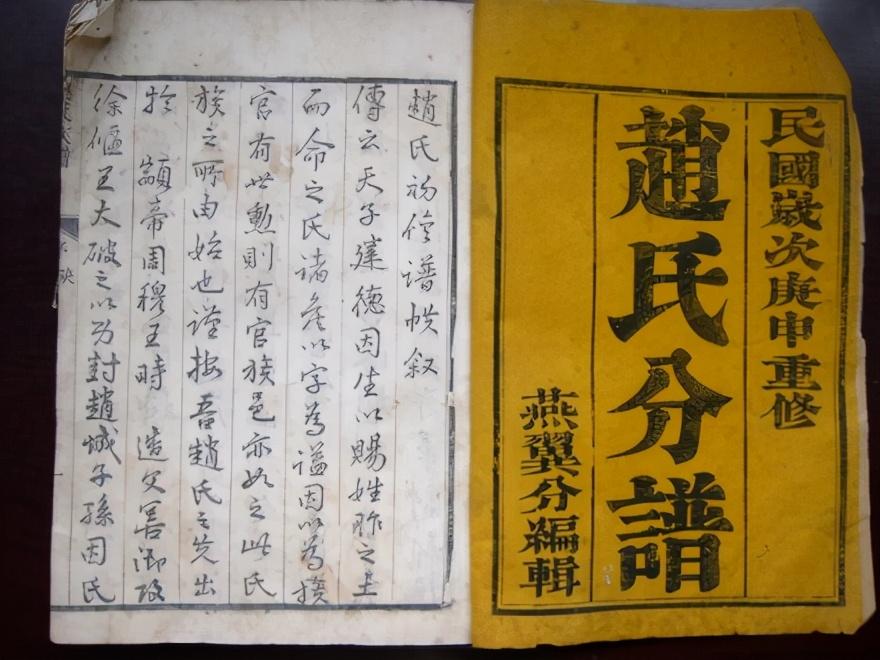 民國歲次庚申重修
趙氏分譜
燕翼分編輯
趙氏初修譜帙叙
傳云天子建德因生以賜姓胙之土
而命之氏諸矦以字為謚因以為族
官有世勲則有官族邑亦如之此氏
族之所由始也謹按吾趙氏之先出
於 顓帝周穆王時 造父善御攻
徐偃王大破之以功封趙城子孫因氏